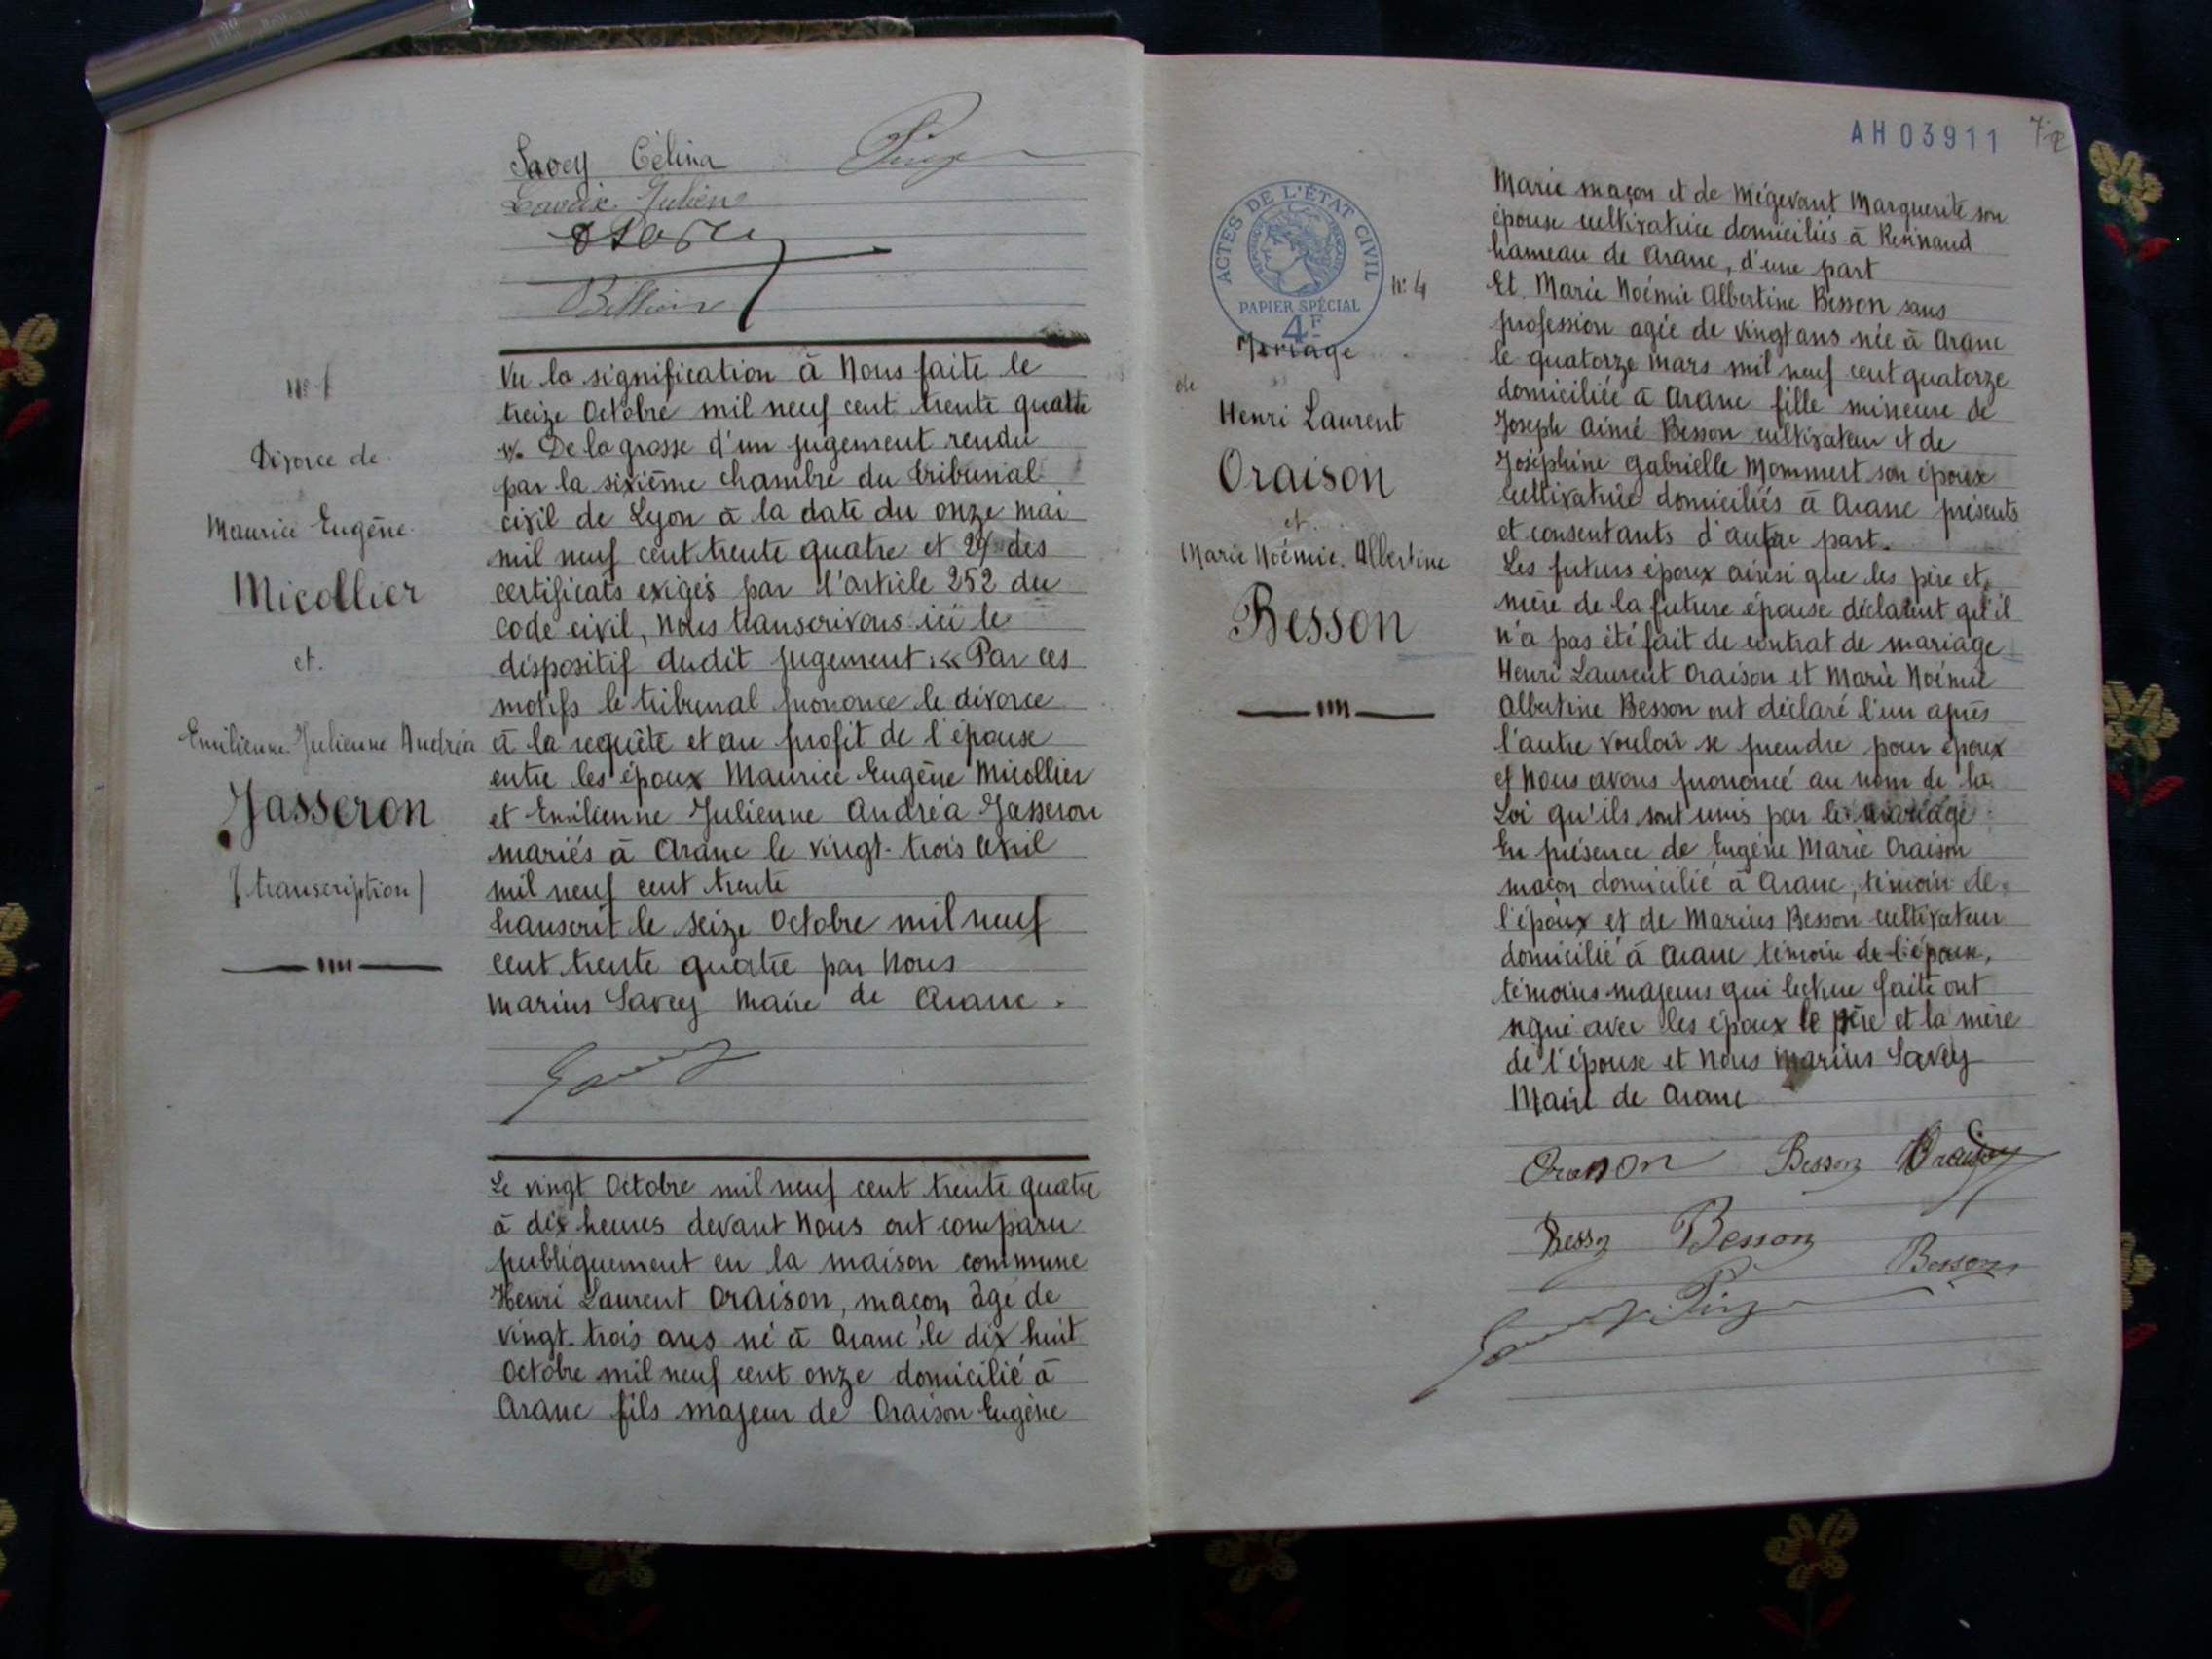 Savey Célina
Vu la signification à Nous faite le
treize Octobre mil neuf cent trente quatre
1% De la grosse d'un jugement rendu
par la sixième chambre du tribunal
civil de Lyon à la date du onze mai
mil neuf cent trente quatre et 2% des
certificats exigés par l'article 252 du
code civil, nous transcrivons ici le
dispositif dudit jugement : « Par ces
motifs le tribunal prononce le divorce
à la requête et au profit de l'épouse
entre les époux Maurice Eugène Micollier
et Emilienne Julienne Andréa Jasseron
mariés à Aranc le vingt-trois avril
mil neuf cent trente
transcrit le seize Octobre mil neuf
cent trente quatre par Nous
Marius Savey Maire de Aranc.
Divorce de
Maurice Eugène
Micollier
et.
Emilienne Julienne Andréa
Jasseron
(transcription)
Le vingt Octobre mil neuf cent trente quatre
à dix heures devant Nous ont comparu
publiquement en la maison commune
Henri Laurent Oraison, maçon âgé de
vingt-trois ans né à Aranc le dix huit
Octobre mil neuf cent onze domicilié à
Aranc fils majeur de Oraison Eugène
AH 03911
ACTES DE L'ÉTAT CIVIL
PAPIER SPÉCIAL
4F
N° 4
Mariage
de
Henri Laurent
Oraison
et.
Marie Noémie Albertine
Besson
Marie maçon et de Mégevant Marguerite son
épouse cultivatrice domiciliés à Résinand
hameau de Aranc, d'une part
Et Marie Noémie Albertine Besson sans
profession agée de vingt ans née à Aranc
le quatorze mars mil neuf cent quatorze
domiciliée à Aranc fille mineure de
Joseph Aimé Besson cultivateur et de
Joséphine Gabrielle Mommert son épouse
cultivatrice domiciliés à Aranc présents
et consentants d'autre part.
Les futurs époux ainsi que les père et
mère de la future épouse déclarent qu'il
n'a pas été fait de contrat de mariage
Henri Laurent Oraison et Marie Noémie
Albertine Besson ont déclaré l'un après
l'autre vouloir se prendre pour époux
et Nous avons prononcé au nom de la
Loi qu'ils sont unis par le mariage
En présence de Eugène Marie Oraison
maçon domicilié à Aranc, témoin de
l'époux et de Marius Besson cultivateur
domicilié à Aranc témoin de l'épouse,
témoins majeurs qui lecture faite ont
signé avec les époux le père et la mère
de l'épouse et Nous Marius Savey
Maire de Aranc
Oraison Besson Oraison
Besson Besson
Besson